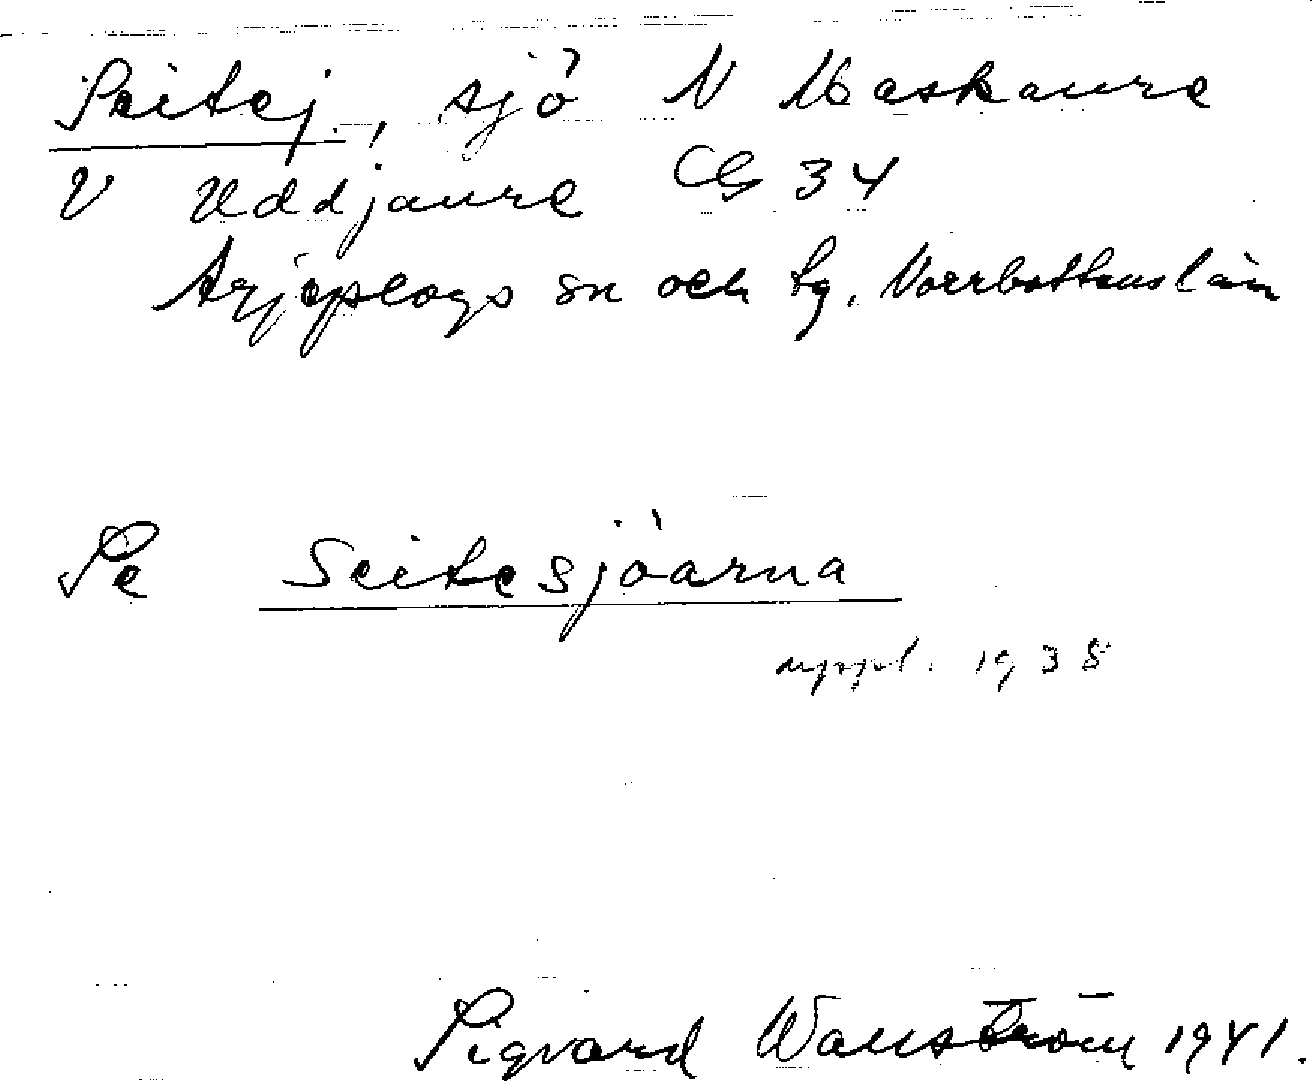 Seitej., sjö N Maskaure
V Uddjaure CG 34
Arjeplogs sn och tg, Norrbottens län
Se Seitesjöarna
uppt. 1938
Sigvard Wallström 1941.